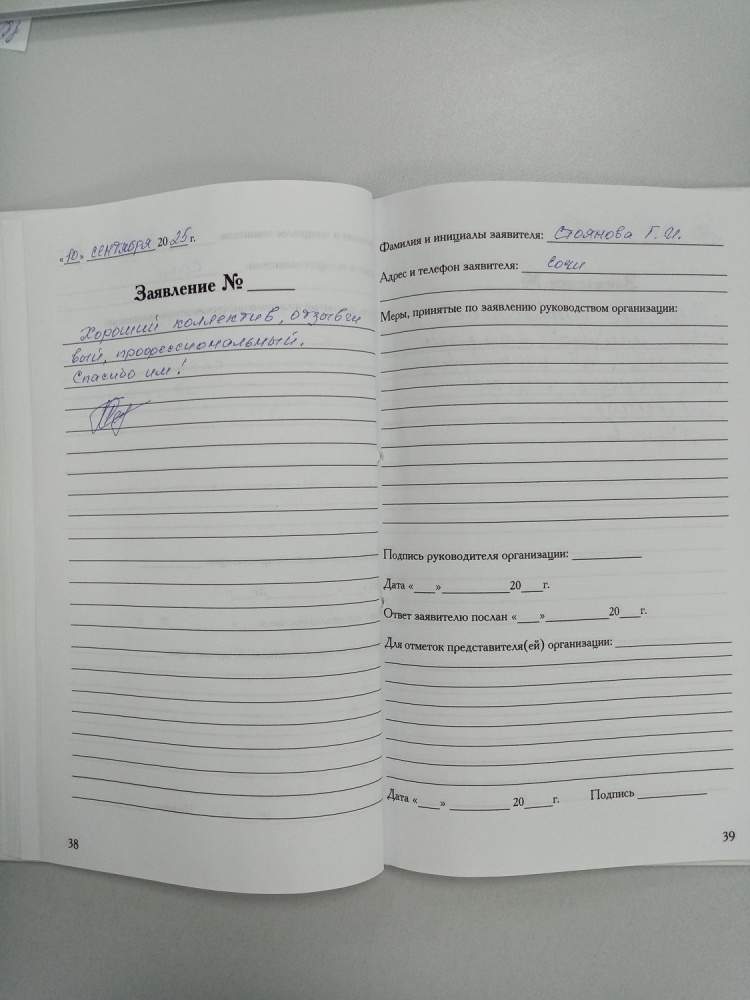 «10» сентября 2025 г.
Заявление № ______
Хороший коллектив, отзывчи
вый, профессиональный.
Спасибо им!
38
Фамилия и инициалы заявителя: Стоянова Г. И.
Адрес и телефон заявителя: Сочи
Меры, принятые по заявлению руководством организации:
Подпись руководителя организации: __________
Дата «___»__________20___г.
Ответ заявителю послан «___»__________20___г.
Для отметок представителя(ей) организации:
Дата «___» _________ 20____г. Подпись __________
39